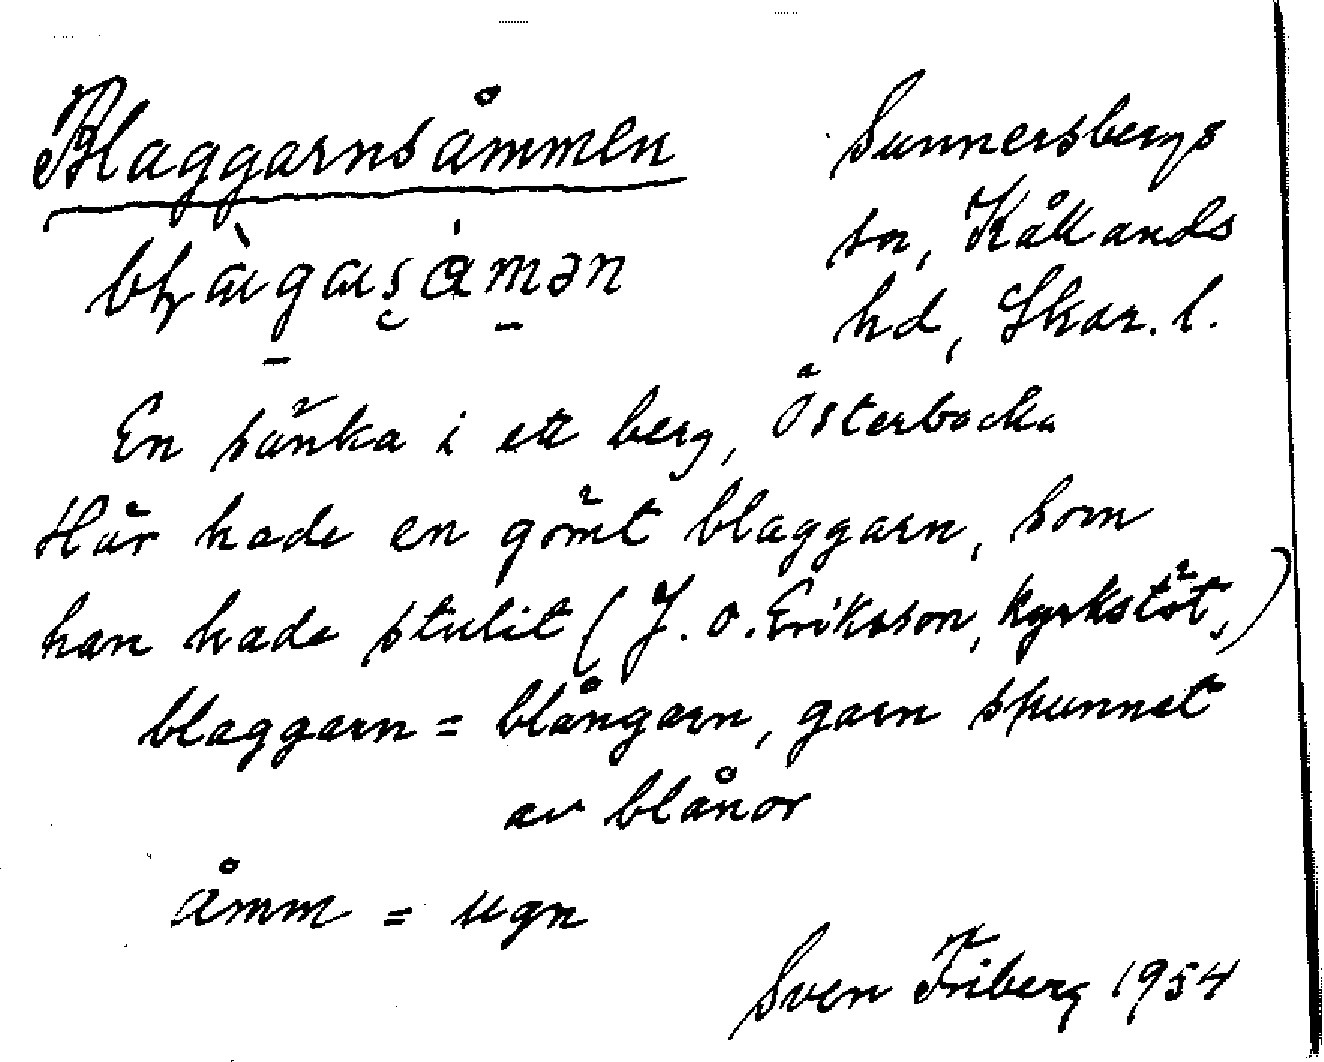 Blaggarnsåmmen
Sunnersbergs
sn, Kållands
hd, Skar. l.
En sänka i ett berg, Österbacka
Här hade en gömt blaggarn, som
han hade stulit (J. O. Eriksson, Kyrkstöt,)
blaggarn = blångarn, garn spunnet
av blånor
åmm = ugn
Sven Friberg 1954